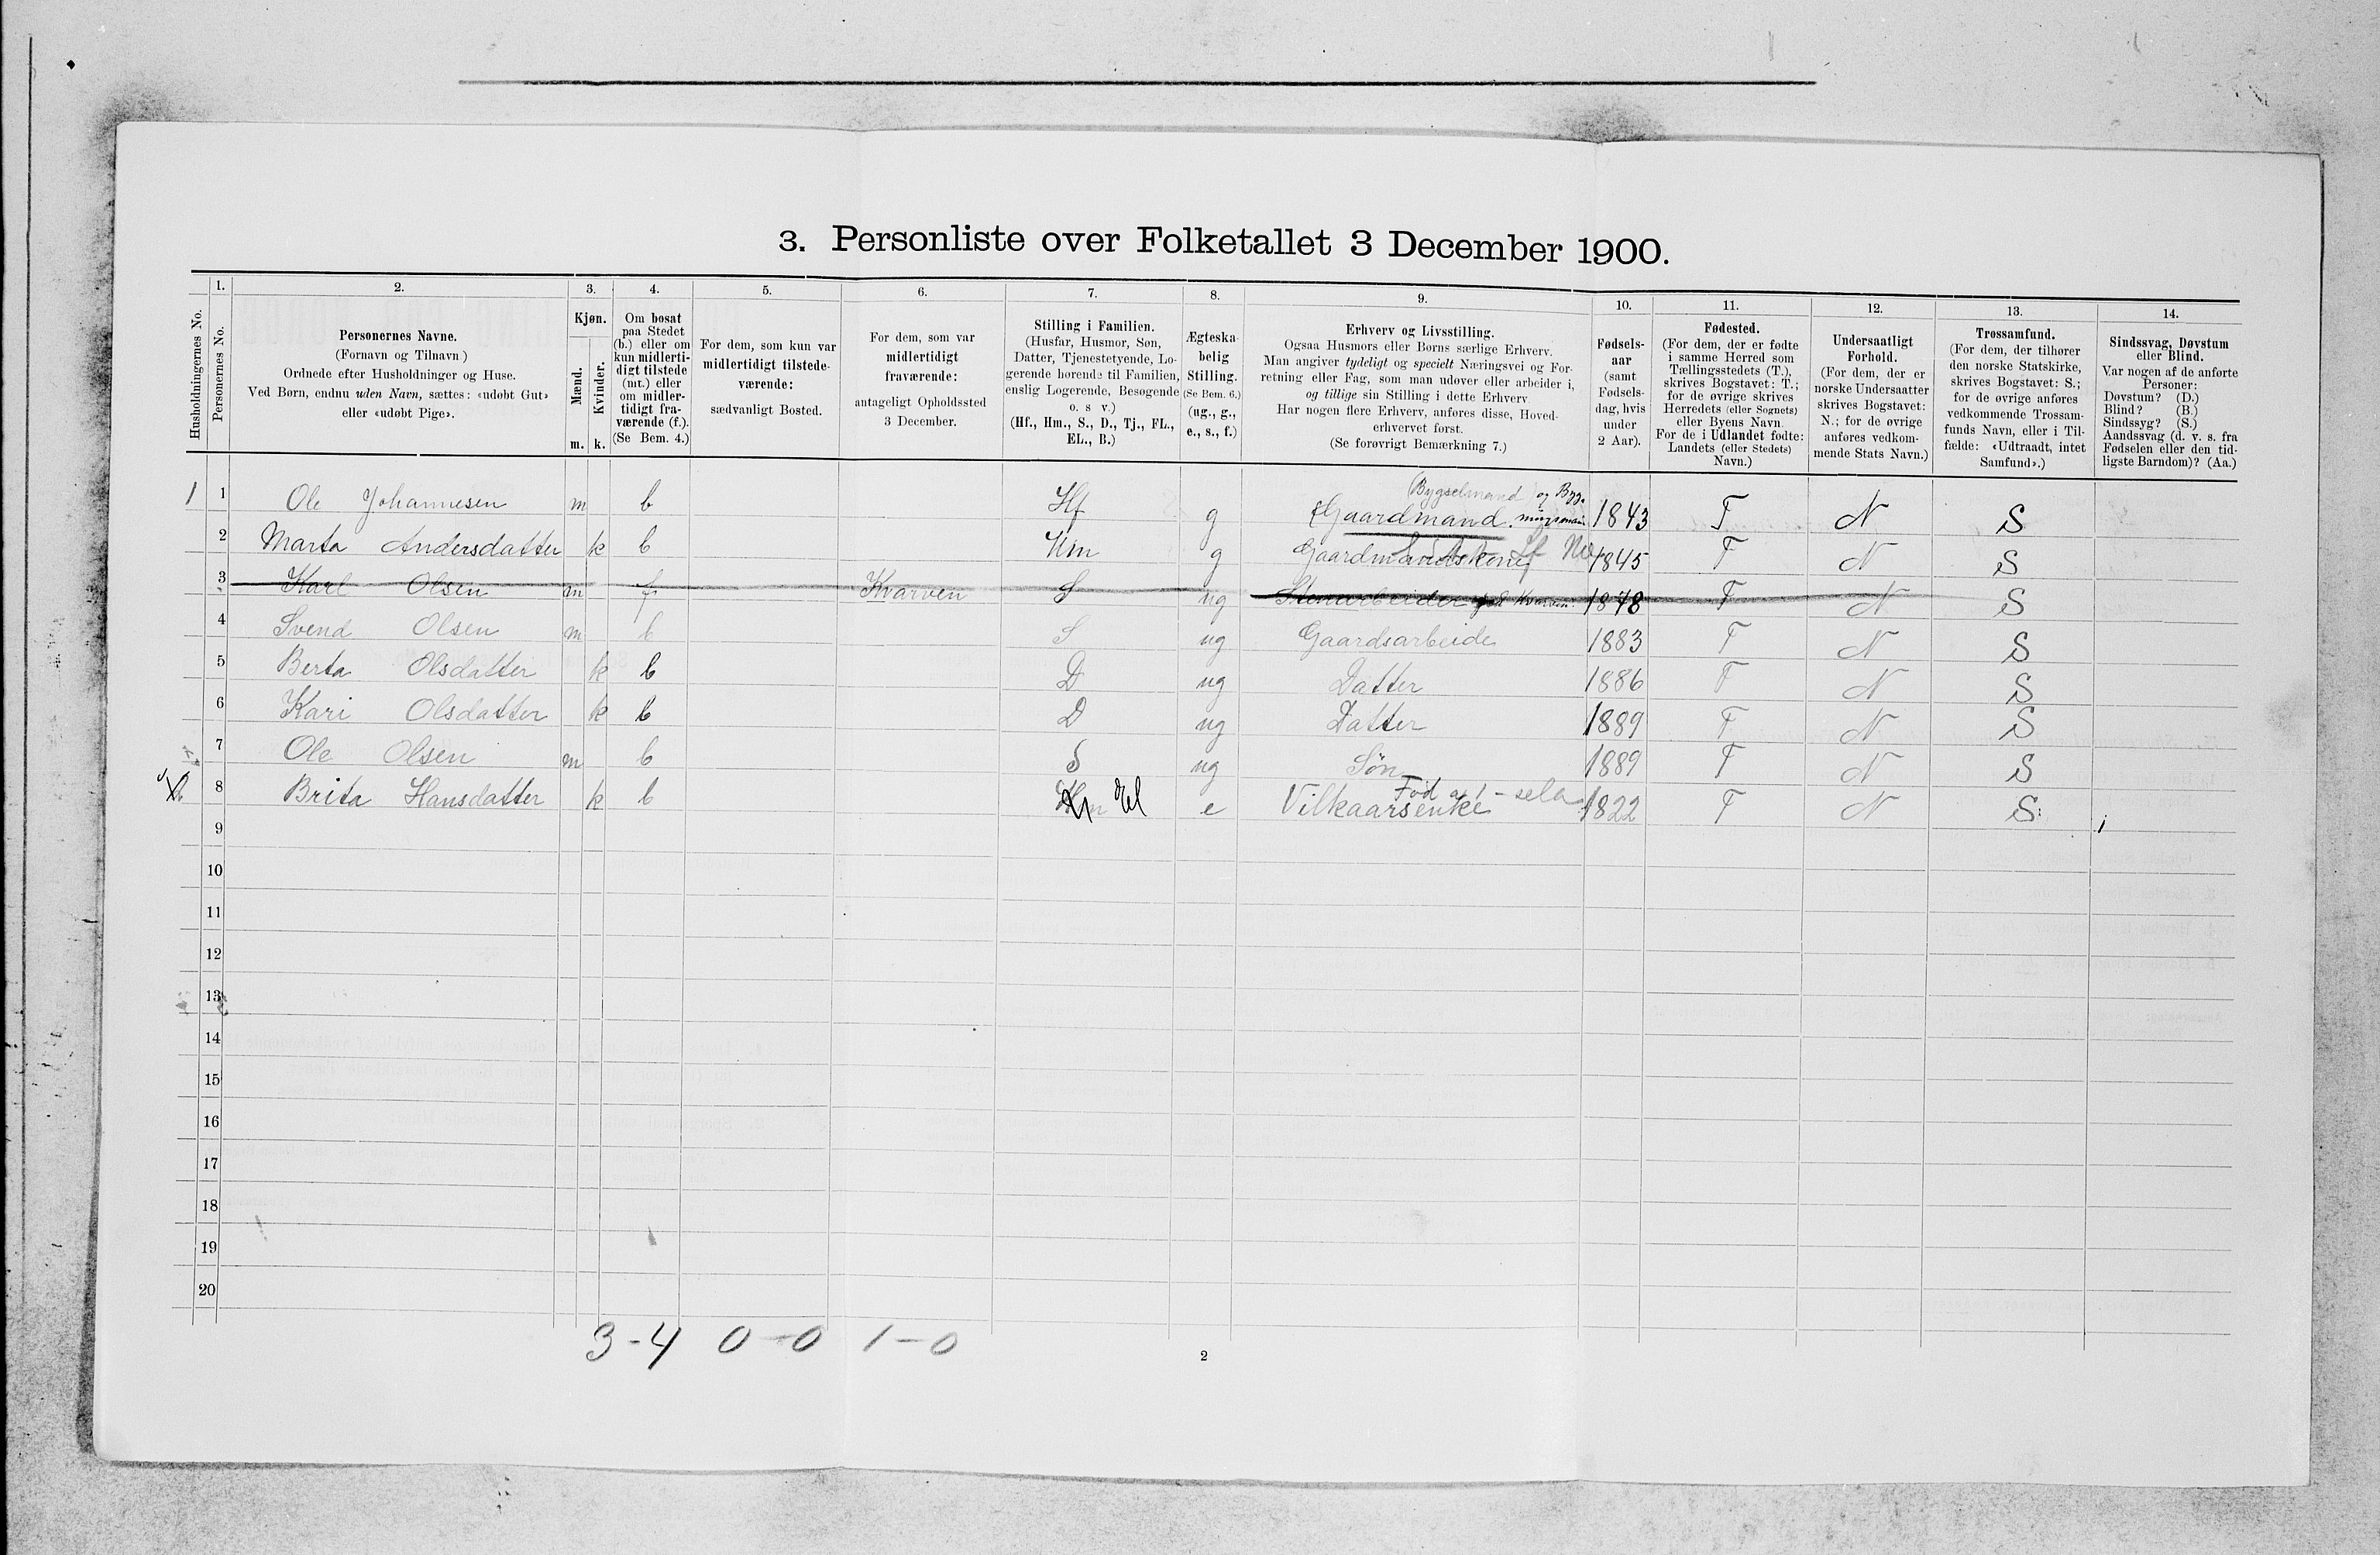 3. Personliste over Folketallet 3 December 1900.
Husholdningernes No.
1.
Personernes No.
2.
Personernes Navne.
(Fornavn og Tilnavn.)
Ordnede efter Husholdninger og Huse.
Ved Børn, endnu uden Navn, sættes: «udøbt Gut»
eller «udøbt Pige».
3.
Kjøn.
Mænd.
Kvinder.
m. k.
4.
Om bosat
paa Stedet
(b.) eller om
kun midlerti-
digt tilstede
(mt.) eller
om midler-
tidigt fra-
værende (f.).
(Se Bem. 4.)
5.
For dem, som kun var
midlertidigt tilstede-
værende:
sædvanligt Bosted.
6.
For dem, som var
midlertidigt
fraværende:
antageligt Opholdssted
3 December.
7.
Stilling i Familien.
(Husfar, Husmor, Søn,
Datter, Tjenestetyende, Lo-
gerende hørende til Familien,
enslig Logerende, Besøgende
o. s v.)
(Hf., Hm., S., D., Tj., FL.,
EL., B.)
8.
Ægteska-
belig
Stilling.
(Se Bem. 6.)
(ug., g.,
e., s., f.)
9.
Erhverv og Livsstilling.
Ogsaa Husmors eller Børns særlige Erhverv.
Man angiver tydeligt og specielt Næringsvei og For-
retning eller Fag, som man udøver eller arbeider i,
og tillige sin Stilling i dette Erhverv
Har nogen flere Erhverv, anføres disse, Hoved-
erhvervet først.
(Se forøvrigt Bemærkning 7.)
10.
Fødsels-
aar
(samt
Fødsels-
dag, hvis
under
2 Aar).
11.
Fødested.
(For dem, der er fødte
i samme Herred som
Tællingsstedets (T.),
skrives Bogstavet: T.;
for de øvrige skrives
Herredets (eller Sognets)
eller Byens Navn.
For de i Udlandet fødte:
Landets (eller Stedets)
Navn.)
12.
Undersaatligt
Forhold.
(For dem, der er
norske Undersaatter
skrives Bogstavet:
N.; for de øvrige
anføres vedkom-
mende Stats Navn.)
13.
Trossamfund.
(For dem, der tilhører
den norske Statskirke,
skrives Bogstavet: S.;
for de øvrige anføres
vedkommende Trossam-
funds Navn, eller i Til-
fælde: «Udtraadt, intet
Samfund».)
14.
Sindssvag, Døvstum
eller Blind.
Var nogen af de anførte
Personer:
Døvstum? (D.)
Blind? (B.)
Sindssyg? (S.)
Aandssvag (d. v. s. fra
Fødselen eller den tid-
ligste Barndom)? (Aa.)
1 1 Ole Johannesen m b Hf g Gaardmand. 1843 T N S
Bygselmand og Byg-
2 Marta Andersdatter k b Hm g Gaardmandskone 1845 T N S
3 Karl Olsen m f Kvarven S ug Stenarbeider 1878 T N S
4 Svend Olsen m b S ug Gaardsarbeide 1883 T N S
5 Berta Olsdatter k b D ug Datter 1886 T N S
6 Kari Olsdatter k b D ug Datter 1889 T N S
7 Ole Olsen m b S ug Søn 1889 T N S
8 Brita Hansdatter k b El e Vilkaarsenke 1822 T N S
9
10
11
12
13
14
15
16
17
18
19
20
3-4 0-0 1-0
2